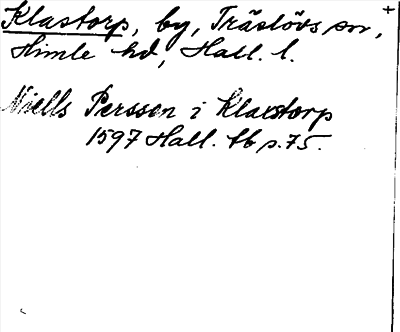 Klastorp, by, Träslövs sn, +
Himle hd, Hall. l.
Niells Persson i Klarstorp
1597 Hall. tb p. 75.